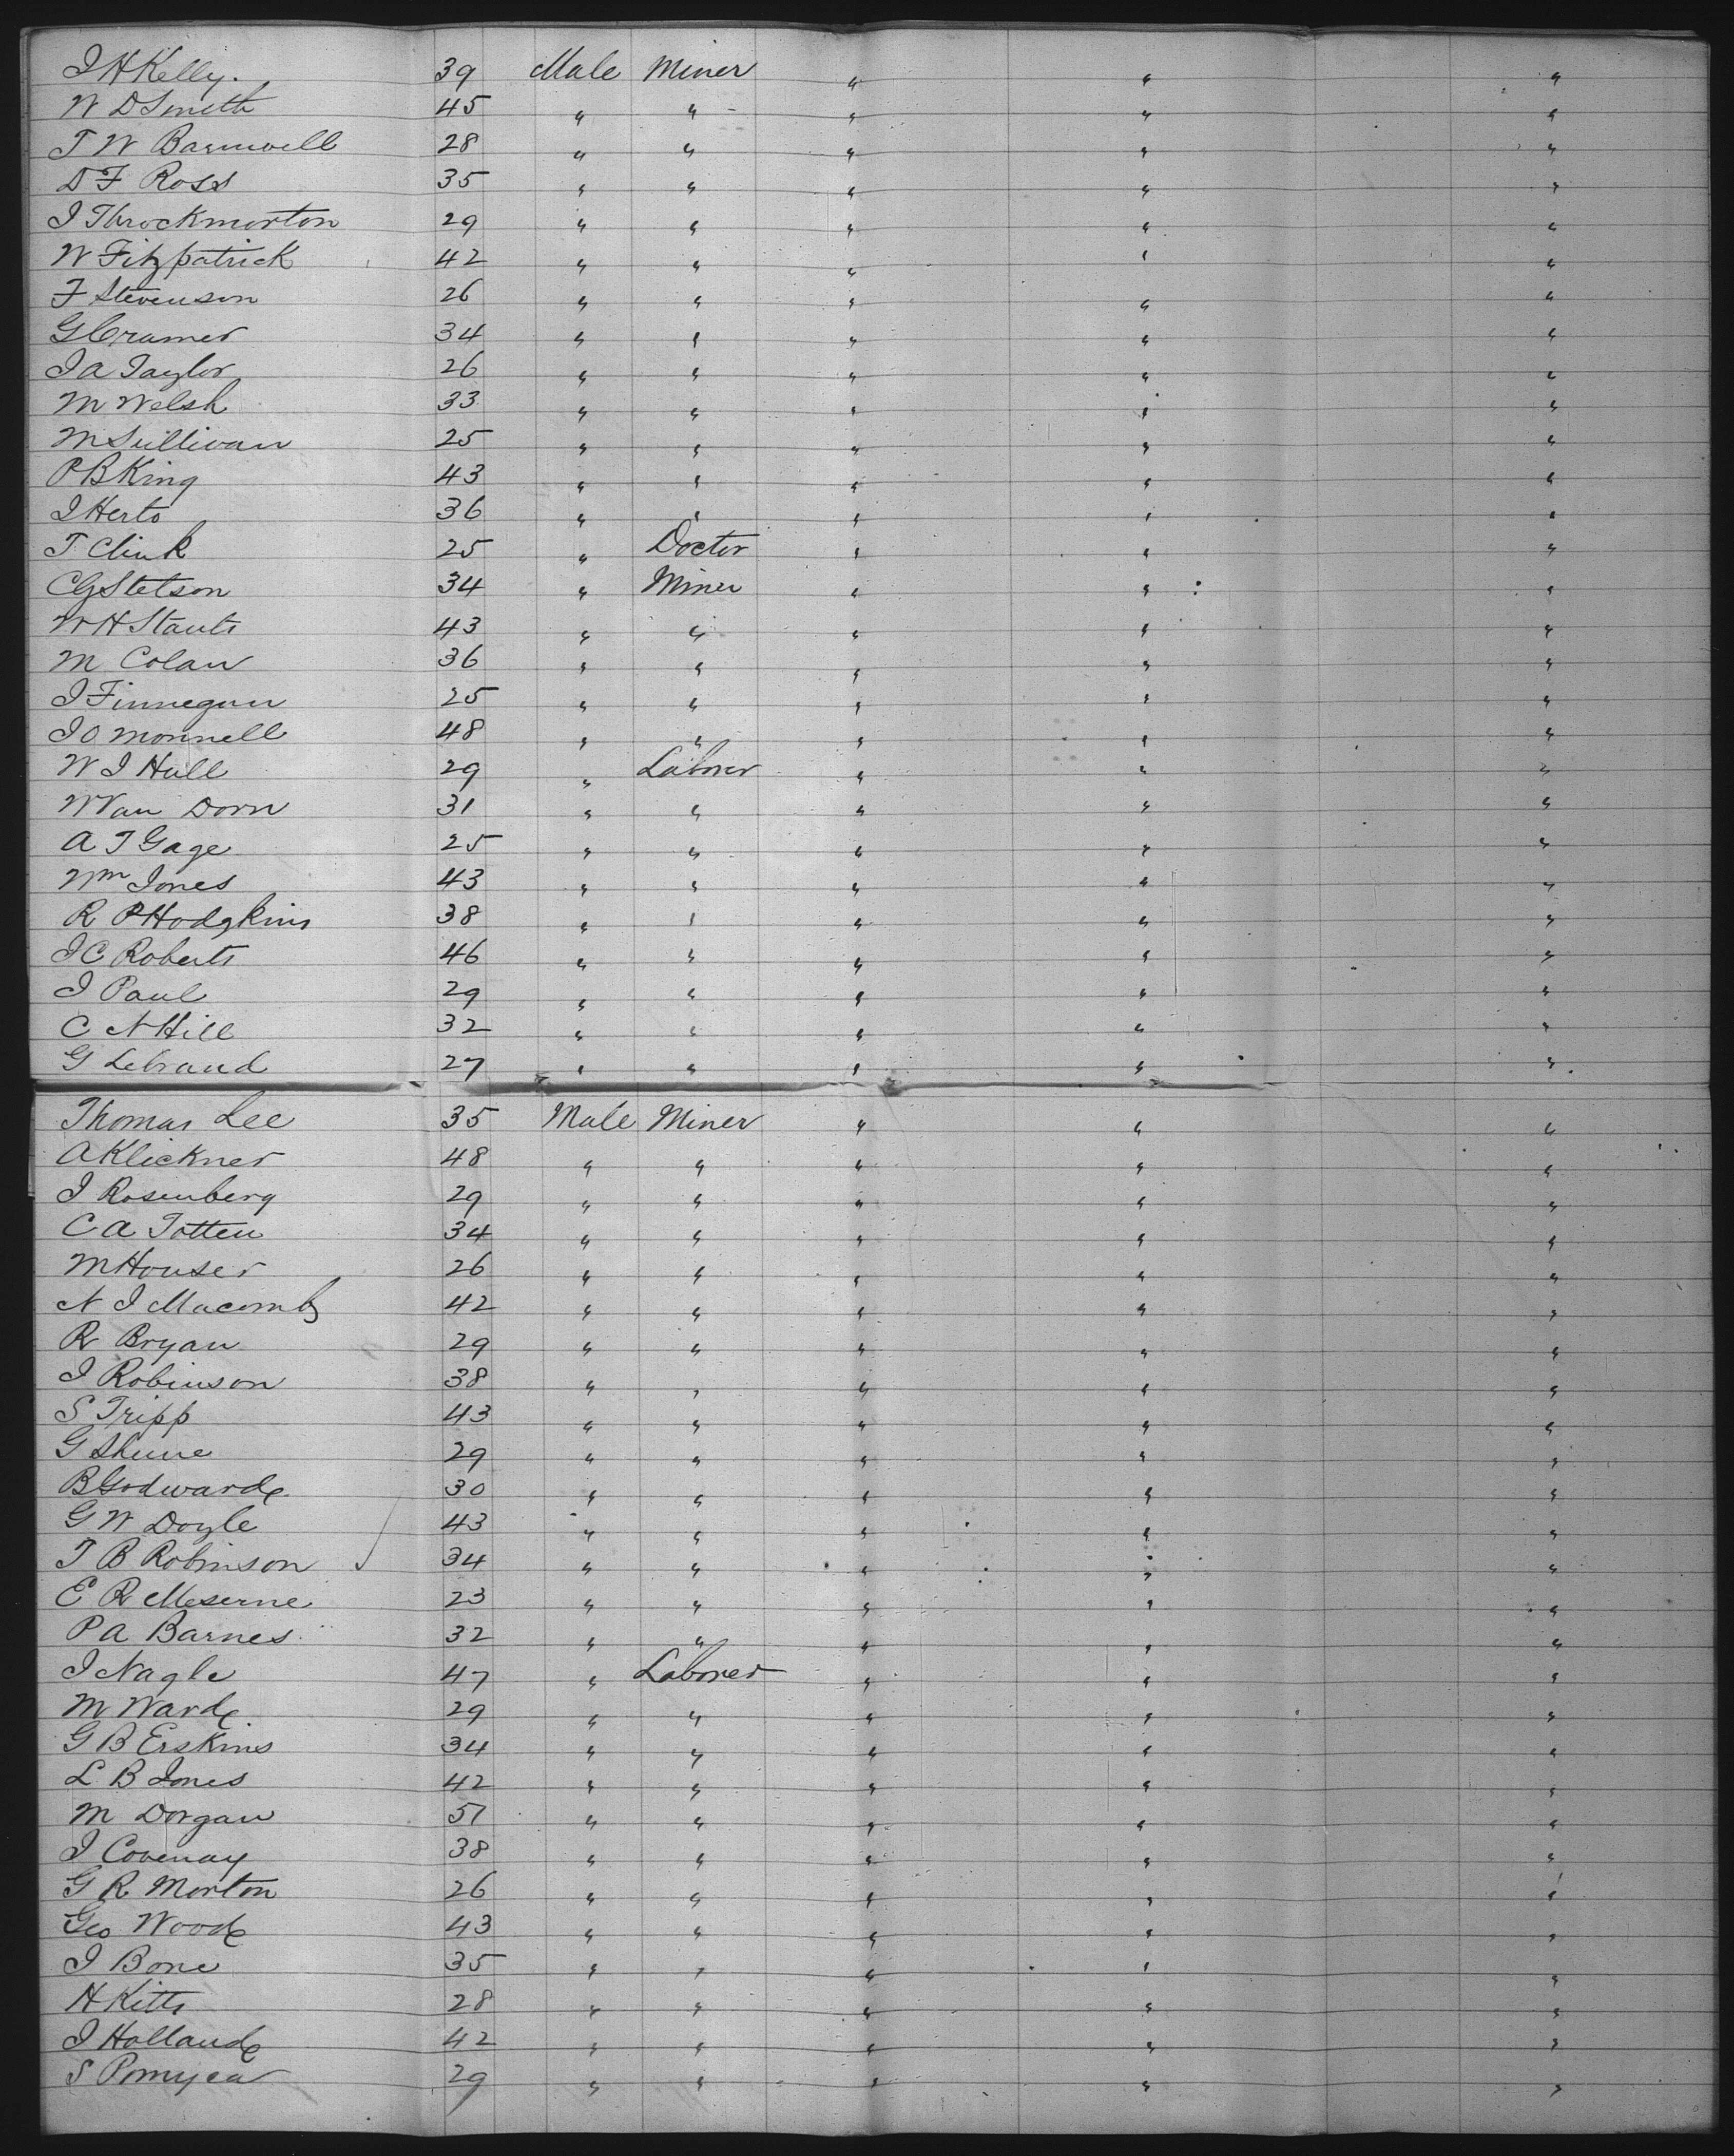 J H Kelly. 39 Male Miner " " "
W D Smith 45 " " " " "
T W Barnwell 28 " " " " "
D F Ross 35 " " " " "
J Throckmorton 29 " " " " "
W Fitzpatrick 42 " " " " "
F Stevenson 26 " " " " "
G Cramer 34 " " " " "
J A Taylor 26 " " " " "
M Welsh 33 " " " " "
M Sullivan 25 " " " " "
P B King 43 " " " " "
J Herto 36 " " " " "
T. Clink 25 " Doctor " " "
C G Stetson 34 " Miner " " "
W H Stauts 43 " " " " "
M Colan 36 " " " " "
J Finnegan 25 " " " " "
J O Monnell 48 " " " " "
W J Hall 29 " Laborer " " "
W Van Dorn 31 " " " " "
A T Gage 25 " " " " "
Wm Jones 43 " " " " "
R P Hodgkins 38 " " " " "
J C Roberts 46 " " " " "
J Paul 29 " " " " "
C N Hill 32 " " " " "
G Lebrand 27 " " " " "
Thomas Lee 35 Male Miner " " "
A Klickner 48 " " " " "
J Rosenberg 29 " " " " "
C A Totten 34 " " " " "
M Houser 26 " " " " "
N J Macomb 42 " " " " "
R Bryan 29 " " " " "
J Robinson 38 " " " " "
S Tripp 43 " " " " "
G Shune 29 " " " " "
B Godward 30 " " " " "
G W Doyle 43 " " " " "
T B Robinson 34 " " " " "
E R Meserne 23 " " " " "
P A Barnes 32 " " " " "
J Nagle 47 " Laborer " " "
M Ward 29 " " " " "
G B Erskins 34 " " " " "
L B Jones 42 " " " " "
M Dorgan 51 " " " " "
J Covenay 38 " " " " "
G R Morton 26 " " " " "
Geo Wood 43 " " " " "
J Bone 35 " " " " "
H Kitts 28 " " " " "
J Holland 42 " " " " "
S Pomyea 29 " " " " "